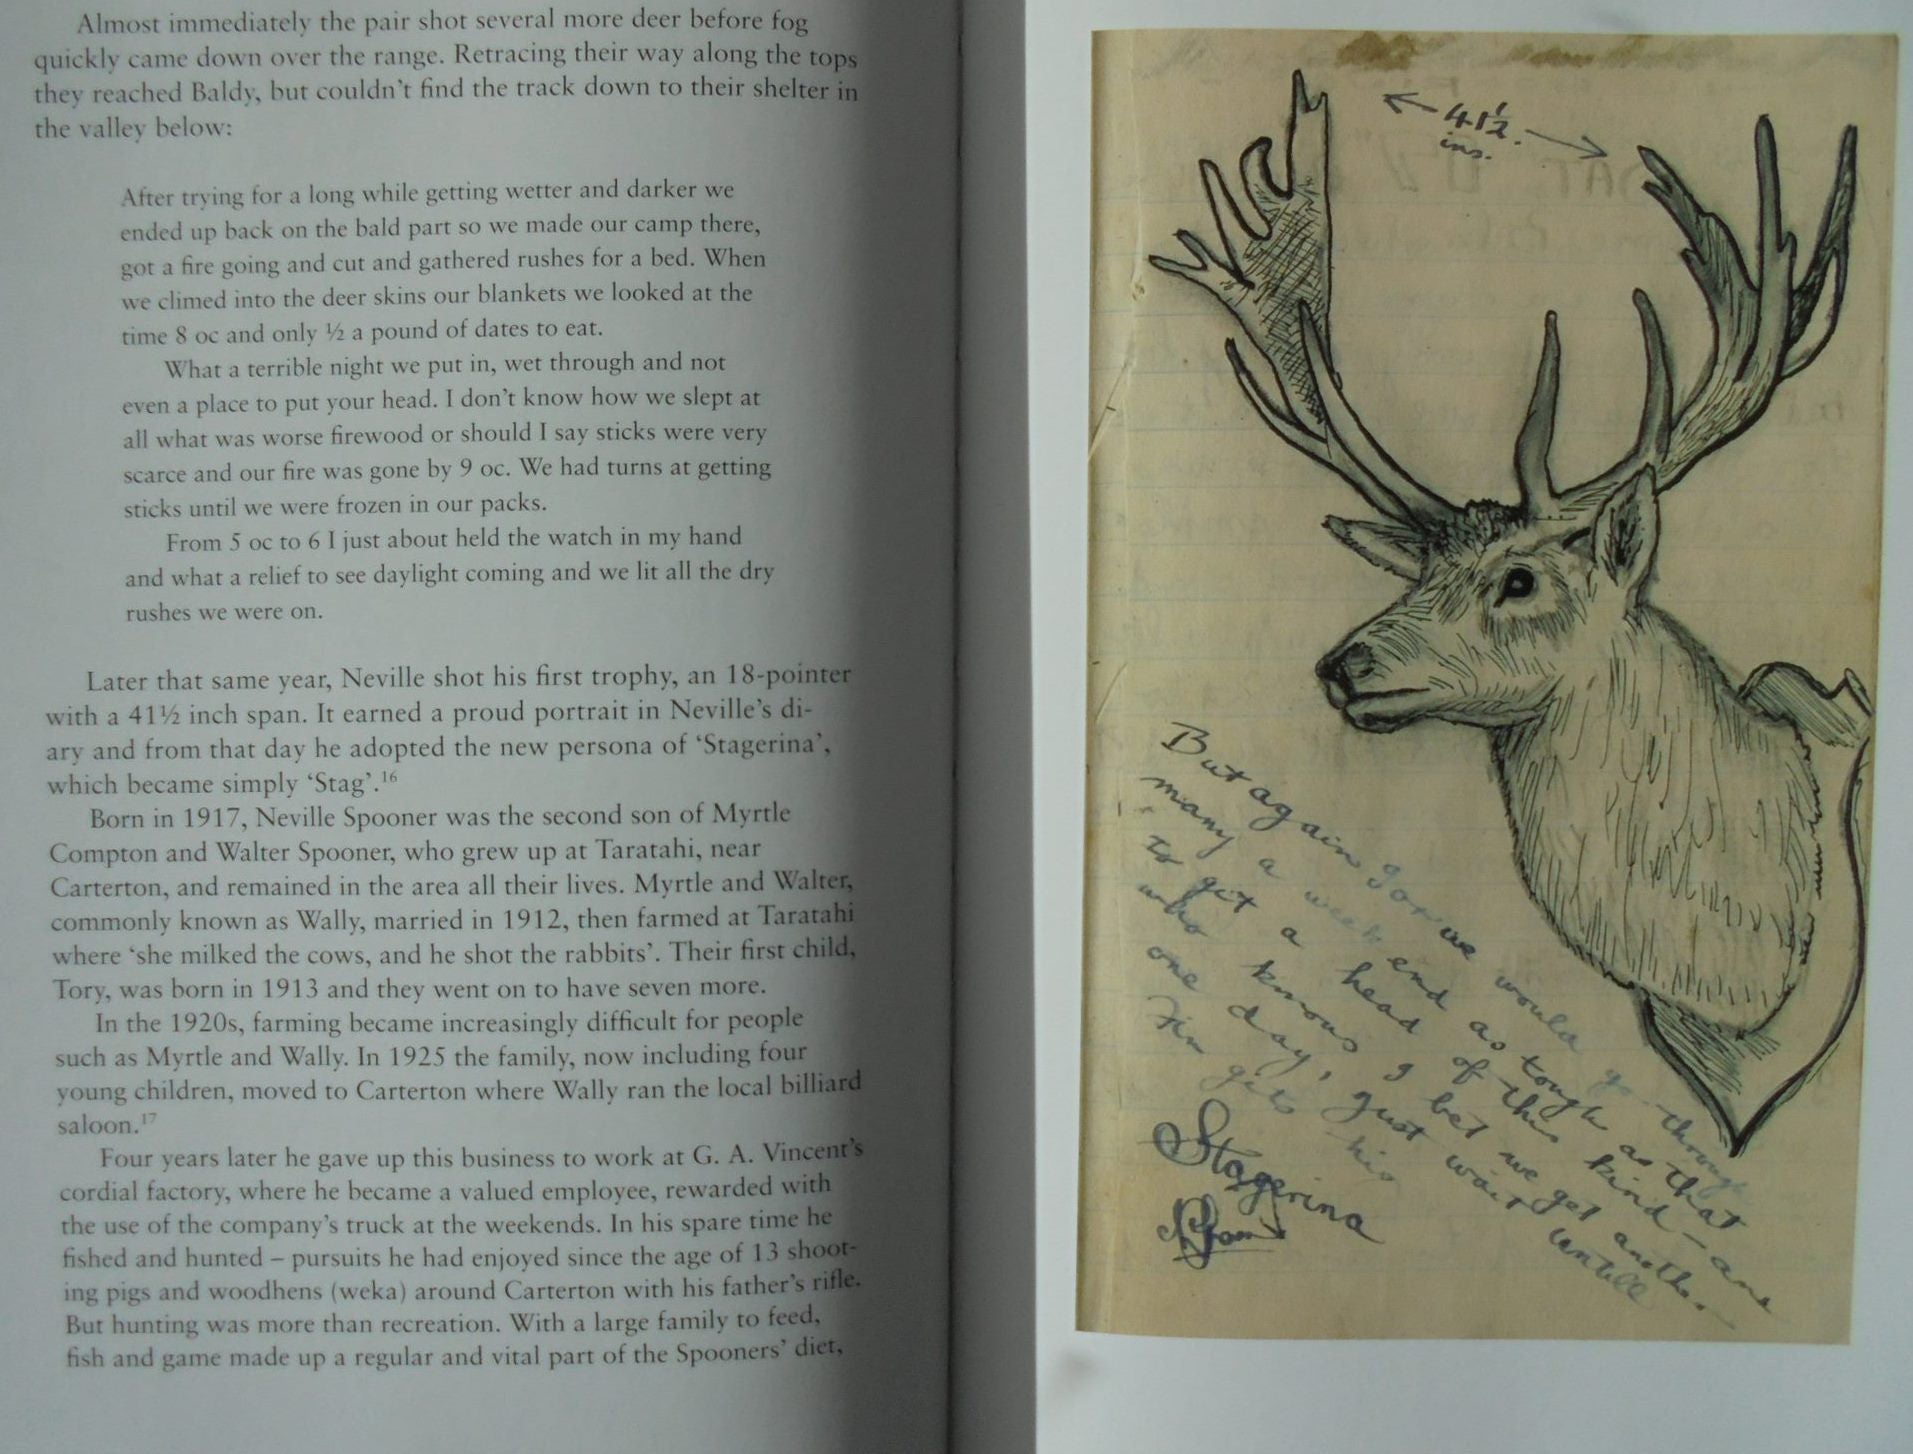 Almost immediately the pair shot several more deer before fog
quickly came down over the range. Retracing their way along the tops
they reached Baldy, but couldn't find the track down to their shelter in
the valley below:
After trying for a long while getting wetter and darker we
ended up back on the bald part so we made our camp there,
got a fire going and cut and gathered rushes for a bed. When
we climed into the deer skins our blankets we looked at the
time 8 oc and only ½ a pound of dates to eat.
What a terrible night we put in, wet through and not
even a place to put your head. I don't know how we slept at
all what was worse firewood or should I say sticks were very
scarce and our fire was gone by 9 oc. We had turns at getting
sticks until we were frozen in our packs.
From 5 oc to 6 I just about held the watch in my hand
and what a relief to see daylight coming and we lit all the dry
rushes we were on.
Later that same year, Neville shot his first trophy, an 18-pointer
with a 41½ inch span. It earned a proud portrait in Neville's di-
ary and from that day he adopted the new persona of 'Stagerina',
which became simply 'Stag'.16
Born in 1917, Neville Spooner was the second son of Myrtle
Compton and Walter Spooner, who grew up at Taratahi, near
Carterton, and remained in the area all their lives. Myrtle and Walter,
commonly known as Wally, married in 1912, then farmed at Taratahi
where 'she milked the cows, and he shot the rabbits'. Their first child,
Tory, was born in 1913 and they went on to have seven more.
In the 1920s, farming became increasingly difficult for people
such as Myrtle and Wally. In 1925 the family, now including four
young children, moved to Carterton where Wally ran the local billiard
saloon.17
Four years later he gave up this business to work at G. A. Vincent's
cordial factory, where he became a valued employee, rewarded with
the use of the company's truck at the weekends. In his spare time he
fished and hunted – pursuits he had enjoyed since the age of 13 shoot-
ing pigs and woodhens (weka) around Carterton with his father's rifle.
But hunting was more than recreation. With a large family to feed,
fish and game made up a regular and vital part of the Spooners' diet,
41½
ins.
But again you we would go through
many a week end as tough as that
to get a head of this kind – and
who knows I bet we get another
one day, just wait untill
Jim gets his
Stagerina